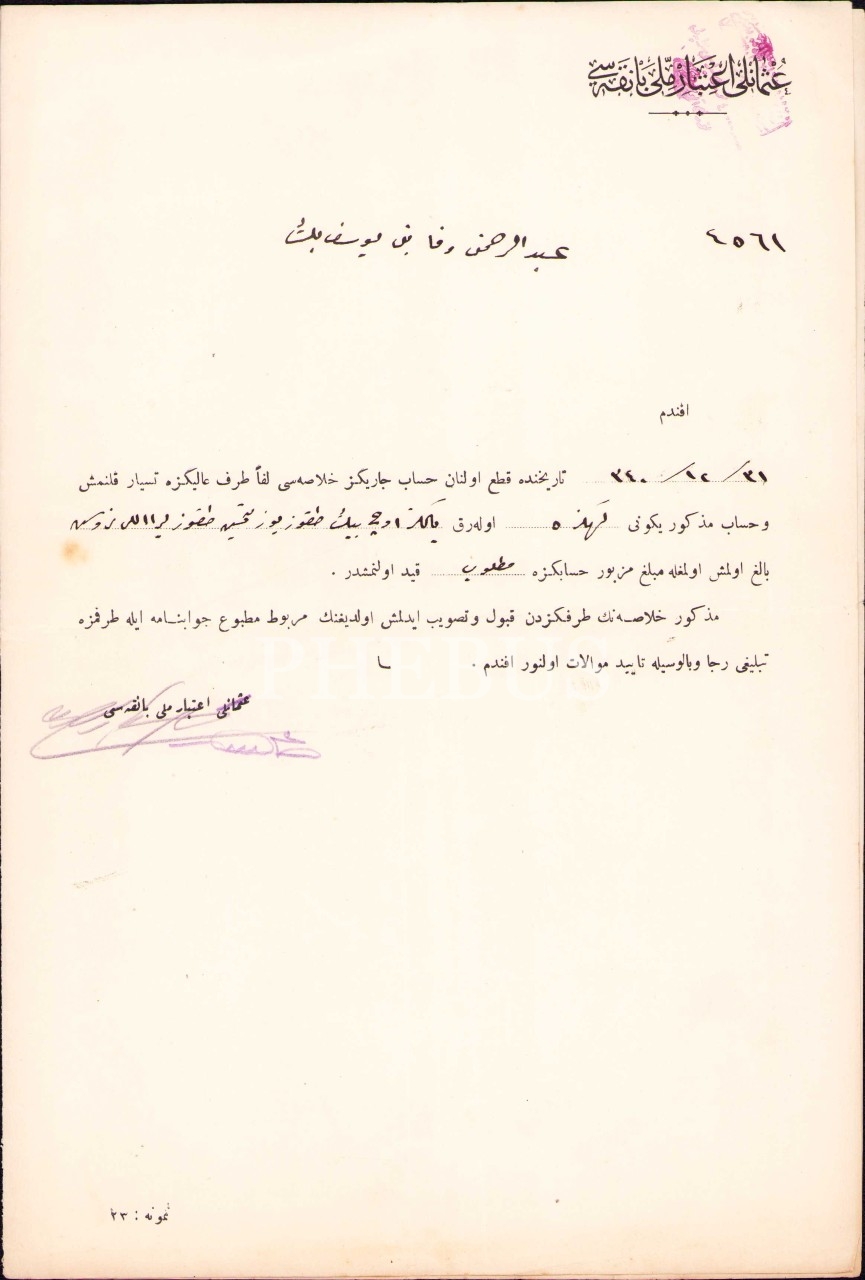 عثمانلی اعتبار ملی بانقه سی
٤٥٦١
عبد الرحمن وفا بق یوسف بك
افندم
٣١/١٢/٣٤٠ تاریخنده قطع اولنان حساب جاریکز خلاصه‌سی لفاً طرف عالیکزه تسیار قلنمش
و حساب مذکور یکونی ٥ اوله‌رق یالکز اوچ بیك طقوز یوز طقوز لیرا غروش
بالغ اولمش اولمغله مبلغ مزبور حسابکزه مطلوب قید اولنمشدر .
مذکور خلاصه‌نك طرفکزدن قبول و تصویب ایدلمش اولدیغنك مربوط مطبوع جوابنامه ایله طرفمزه
تبلیغی رجا وبالوسیله تایید موالات اولنور افندم .
عثمانلی اعتبار ملی بانقه سی
PHEBUS
نمونه : ٢٣